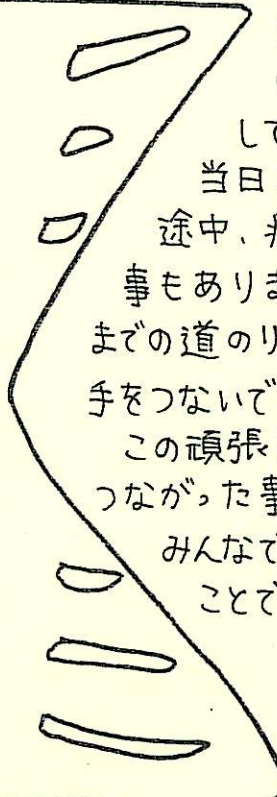 して
当日
途中、
事もありま
までの道のり
手をつないで
この頑張
つながった事
みんなで
ことで